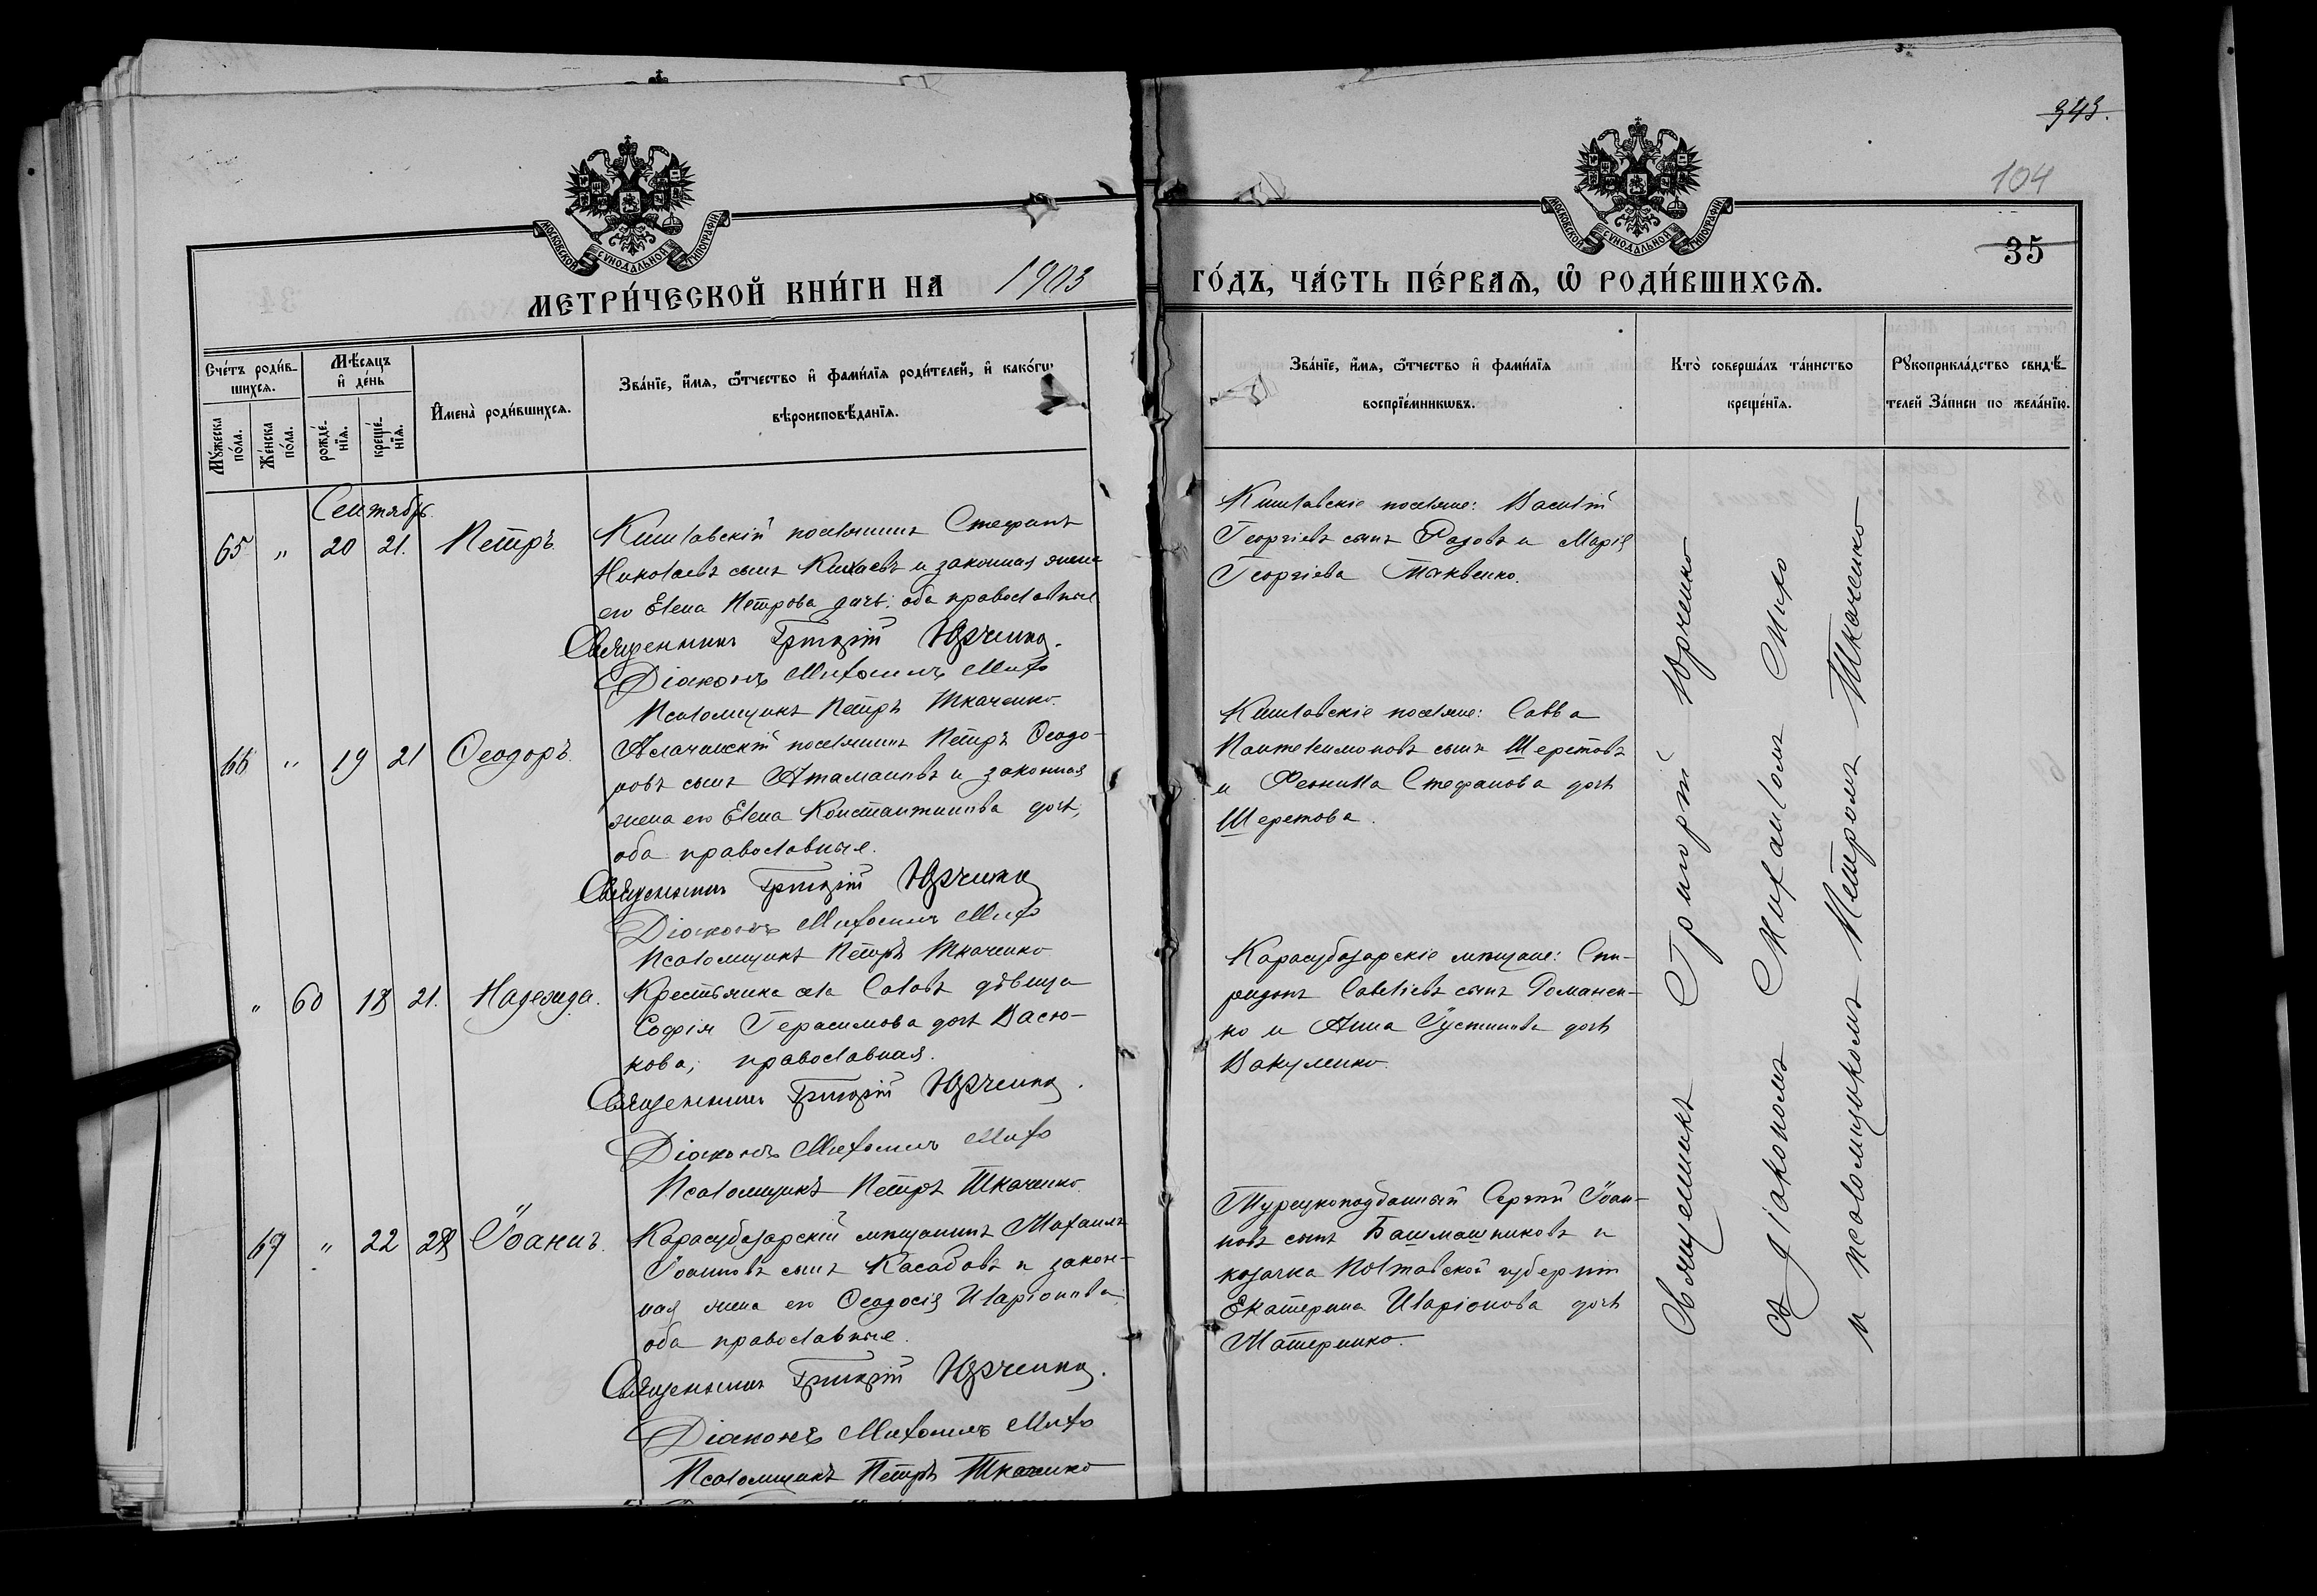 343.
104
35
МОСКОВСКОЙ СУНОДАЛЬНОЙ ТИПОГРАФІИ
МОСКОВСКОЙ СУНОДАЛЬНОЙ ТИПОГРАФІИ
МЕТРИ́ЧЕСКОЙ КНИ́ГИ НА 1903 ГО́ДЪ, ЧА́СТЬ ПЕ́РВАѦ, Ѽ РОДИ́ВШИХСѦ.
Сче́тъ роди́в-
шихся.
Мꙋ́жеска по́ла.
Же́нска по́ла.
Мѣ́сяцъ и де́нь
рожде́-
нїя.
креще́-
нїя.
Имена̀ роди́вшихся.
Зва́нїе, и́мя, ѻ́тчество и фами́лїя роди́телей, и како́гѡ
вѣроисповѣ́данїя.
Зва́нїе, и́мя, ѻ́тчество и фами́лїя
воспрїе́мникѡвъ.
Кто̀ соверша́лъ та́инство
креще́нїя.
Рꙋкоприкла́дство свидѣ́-
телей За́писи по жела́нїю.
Сентябрь.
65 " 20 21. Петръ.
Кишлавскій поселянинъ Стефанъ
Николаевъ сынъ Кихаевъ и законная жена
его Елена Петрова дочь; оба православные
Священникъ Григорій Юрченко.
Діаконъ Михаилъ Михо
Псаломщикъ Петръ Ткаченко.
Кишлавскіе поселяне: Василій
Георгіевъ сынъ Радовъ и Марія
Георгіева Маквенко.
66 " 19 21 Ѳеодоръ.
поселянинъ Петръ Ѳеодо-
ровъ сынъ Атамановъ и законная
жена его Елена Константинова дочь,
оба православные.
Священникъ Григорій Юрченко
Діаконъ Михаилъ Михо
Псаломщикъ Петръ Ткаченко
Кишлавскіе поселяне: Савва
Пантелеимоновъ сынъ Шеретовъ
и Стефанова дочь
Шеретова.
" 60 18 21. Надежда.
Крестьянка села Саловъ дѣвица
Софія Герасимова дочь Васю-
кова; православная.
Священникъ Григорій Юрченко.
Діаконъ Михаилъ Михо
Псаломщикъ Петръ Ткаченко.
Карасубазарскіе мѣщане: Спи-
ридонъ Савеліевъ сынъ Доманен-
ко и Анна Іустинова дочь
Вакуленко.
67 " 22 28 Іоаннъ.
Карасубазарскій мѣщанинъ Михаилъ
Іоанновъ сынъ Касабовъ и закон-
ная жена его Ѳеодосія Иларіонова;
оба православные.
Священникъ Григорій Юрченко.
Діаконъ Михаилъ Михо
Псаломщикъ Петръ Ткаченко
Турецкоподданный Сергѣй Іоан-
новъ сынъ Башмашниковъ и
козачка Полтавской губерніи
Екатерина Иларіонова дочь
Материнко.
Священникъ Григорій Юрченко
съ діакономъ Михаиломъ Михо
и псаломщикомъ Петромъ Ткаченко